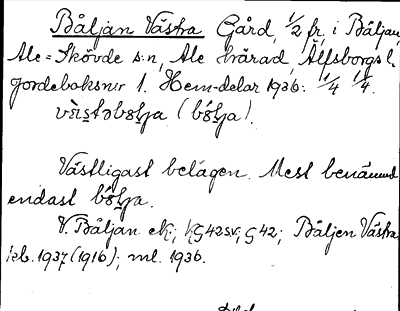 Båljan Västra Gård, 1/2 fr. i Båljan,
Ale=Skövde s:n, Ale härad, Älfsborgs l.
Jordeboksnr 1. Hem-delar 1936: 1/4 1/4.
Västligast belägen. Mest benämnd
endast
V. Båljan ek; hG42sv, G42; Båljen Västra
kb. 1937 (1916); ml. 1936.